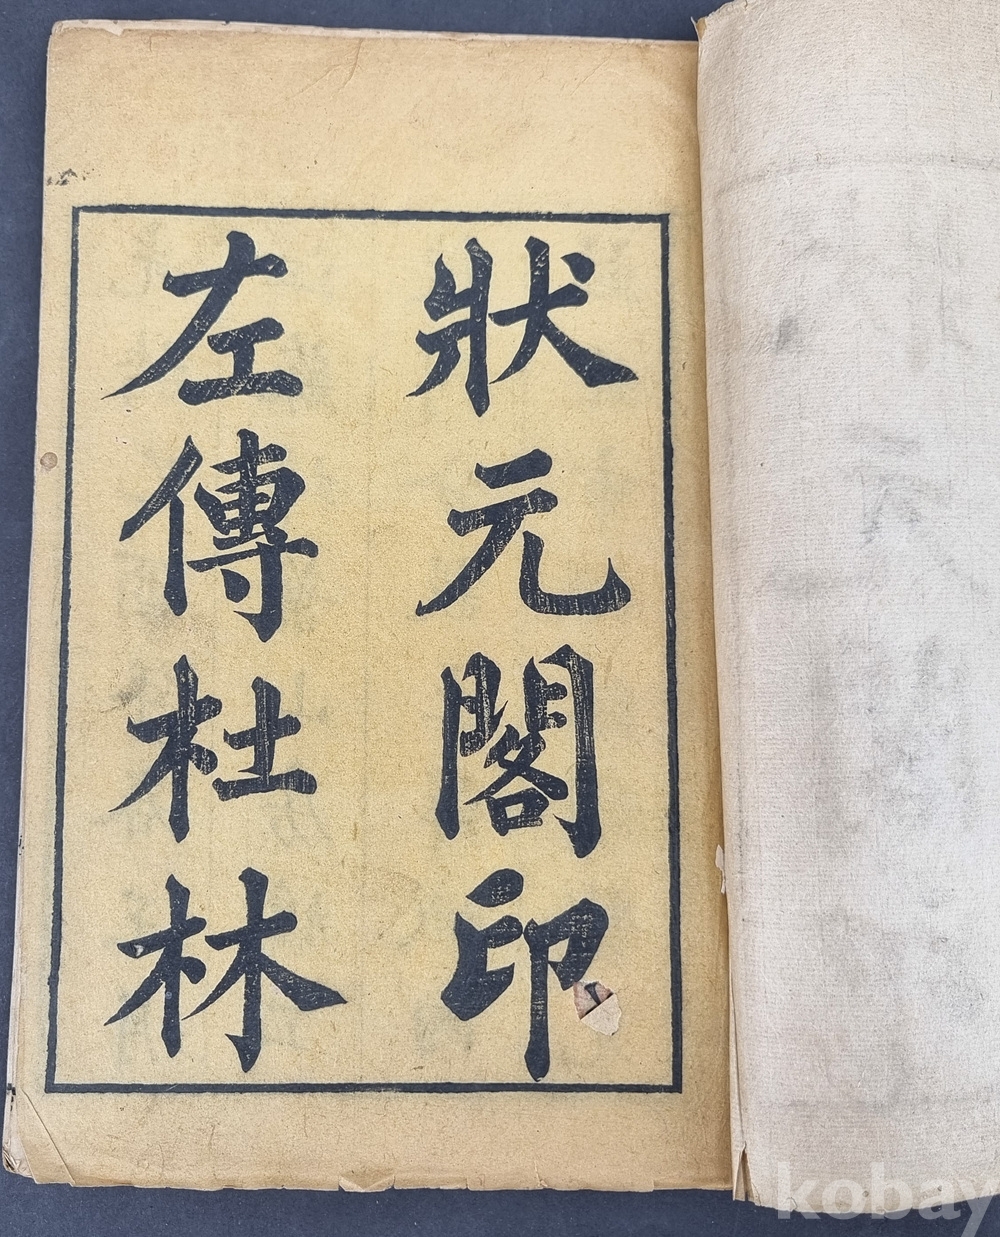 狀元閣印
左傳杜林
kobay